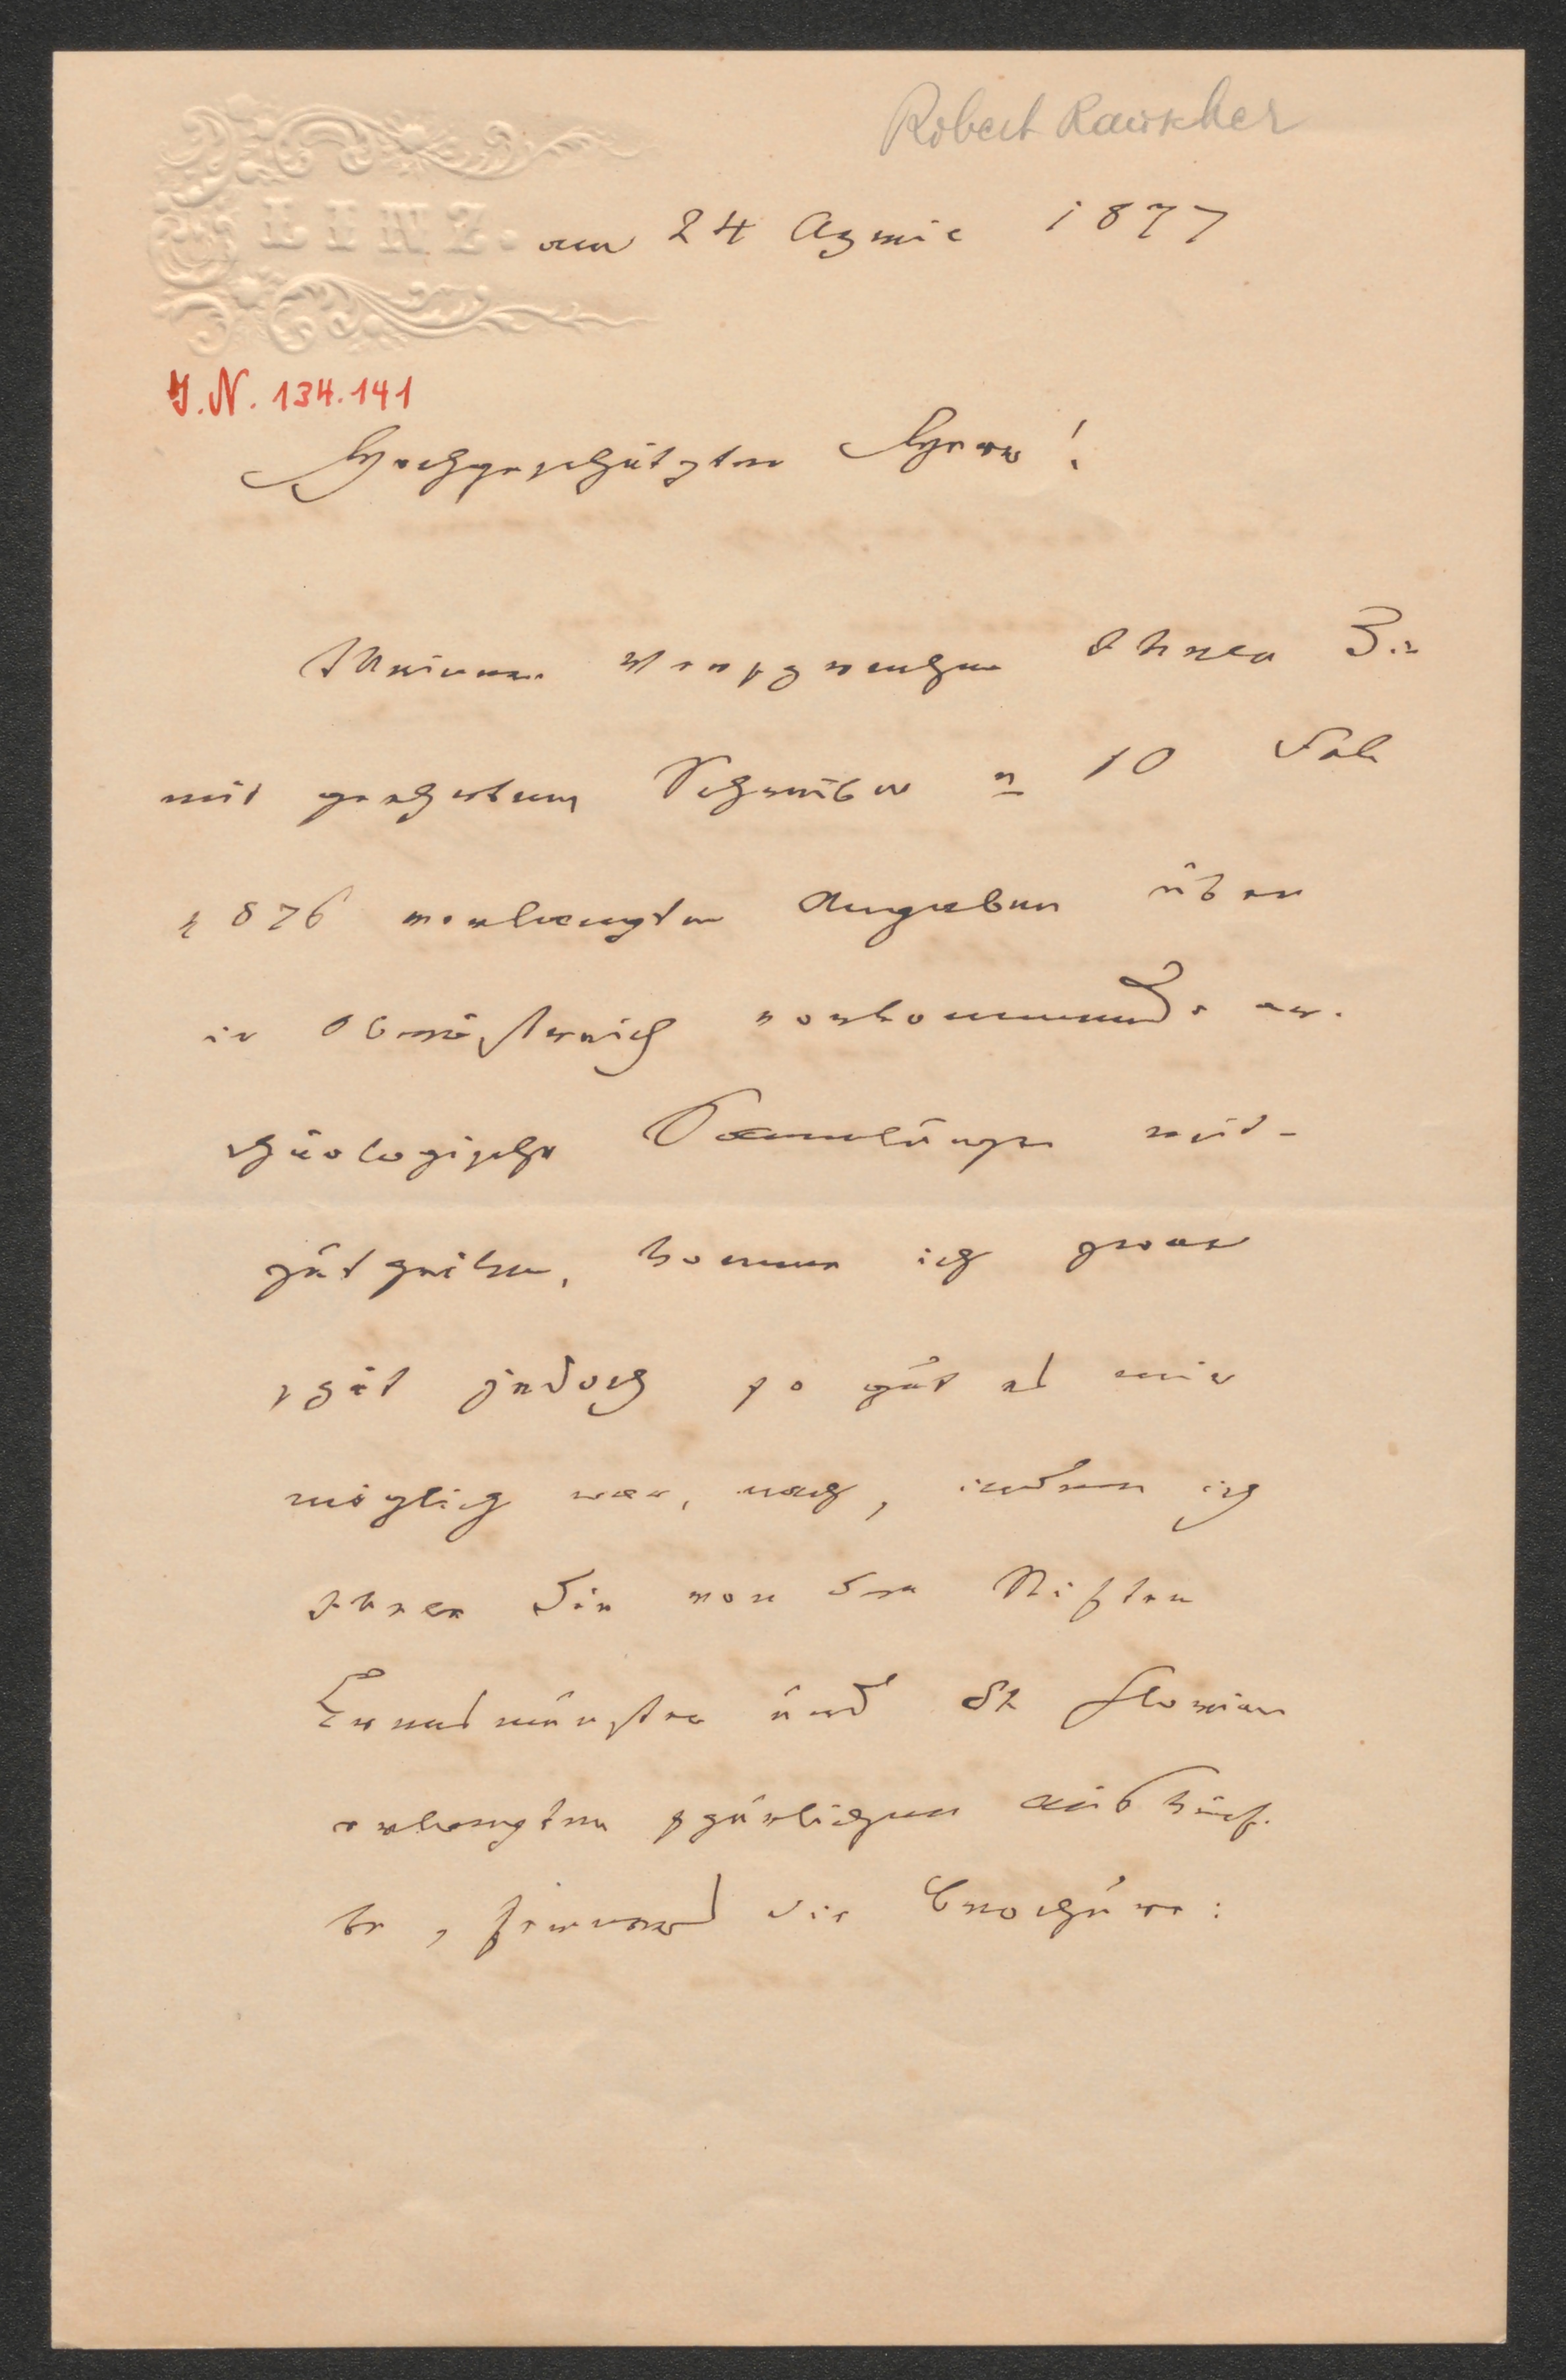 Robert Rauscher
LINZ. am 24 April 1877
I.N. 134.141
Hochgeschätzter Herr!
Meinem Versprechen Ihnen die
mit geehrtem Schreiben v 10 Feb
1876 verlangten Angaben über
in Oberösterreich vorkommende ar-
chäologische Sammlungen mit-
zutheilen, komme ich zwar
spät jedoch so gut es mir
möglich war, nach, indem ich
Ihnen die von den Stiften
Kremsmünster und St Florian
erlangten spärlichen Auskünf-
te, ferners die Brochüre: